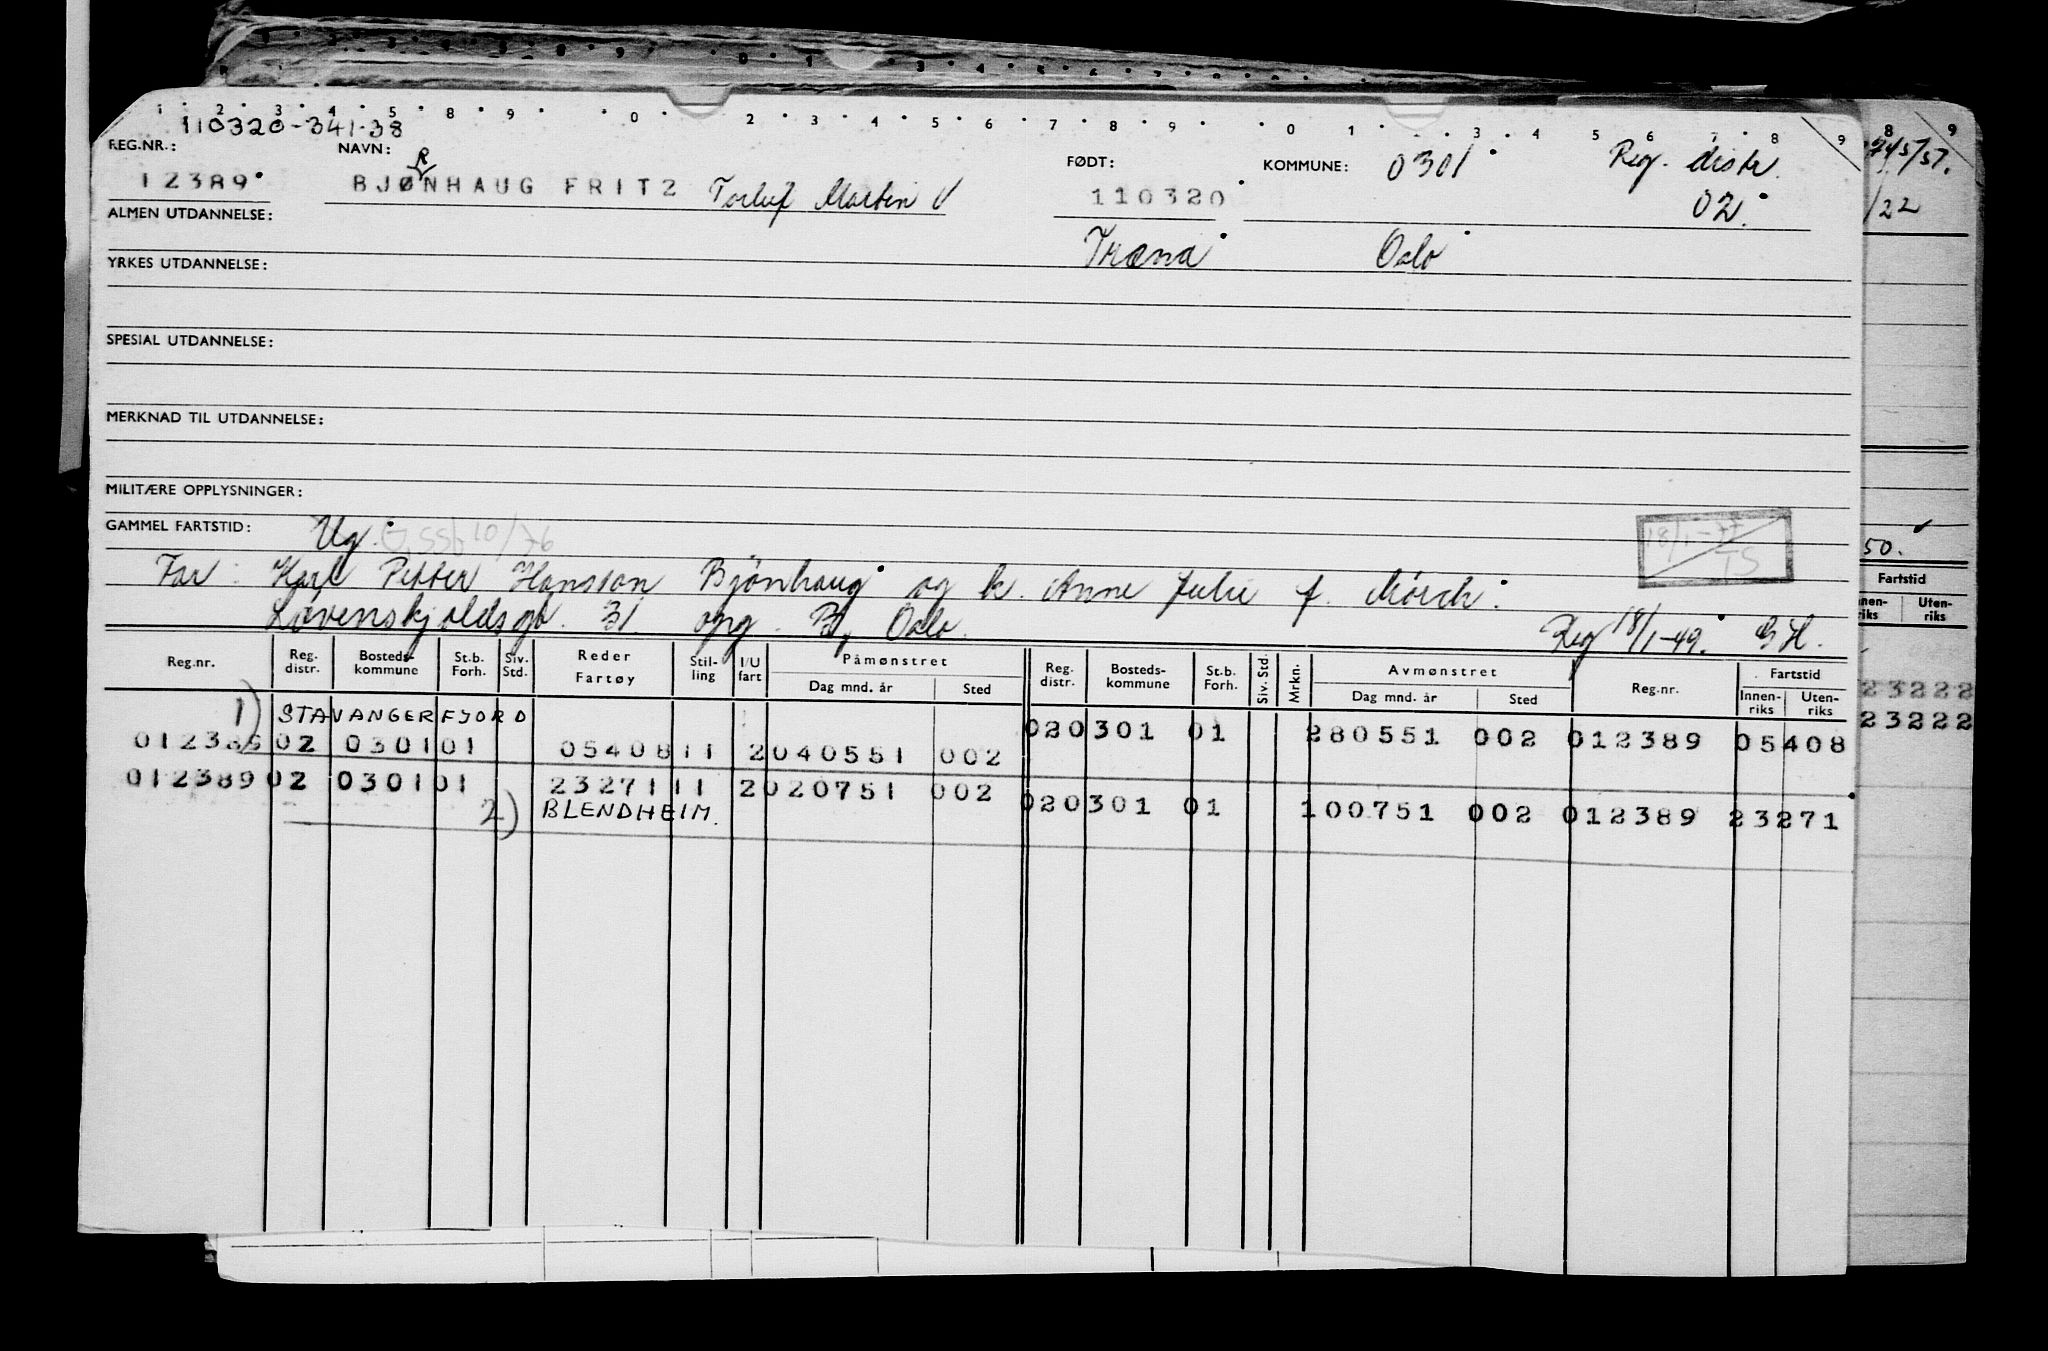 110320-341.38
REG.NR.: NAVN: FØDT: KOMMUNE: 0301 Reg. distr.
12389 BJØRNHAUG FRITZ Torluf Martin V 110320 02.
ALMEN UTDANNELSE:
Træna Oslo
YRKES UTDANNELSE:
SPESIAL UTDANNELSE:
MERKNAD TIL UTDANNELSE:
MILITÆRE OPPLYSNINGER:
GAMMEL FARTSTID: Ug. 10/76
18/1-77
TS
Far: Karl Petter Hansson Bjönhaug og h. Anne Julie f. Mörch.
Løvenskjoldsgt. 31. opg. B, Oslo. Reg 18/1-49. GH.
Reg.nr. Reg. distr. Bosteds- kommune St.b. Forh. Siv. Std. Reder Fartøy Stil- ling I/U fart Påmønstret Dag mnd. år Sted Reg. distr. Bosteds- kommune St.b. Forh. Siv. Std. Mrkn. Avmønstret Dag mnd. år Sted Reg.nr. Fartstid Innen- riks Uten- riks
1) STAVANGERFJORD
012389 02 0301 01 05408 11 2 040551 002 02 0301 01 280551 002 012389 05408
012389 02 0301 01 23271 11 2 020751 002 02 0301 01 100751 002 012389 23271
2) BLENDHEIM.
/22
50.
Fartstid
Uten- riks
23222
23222